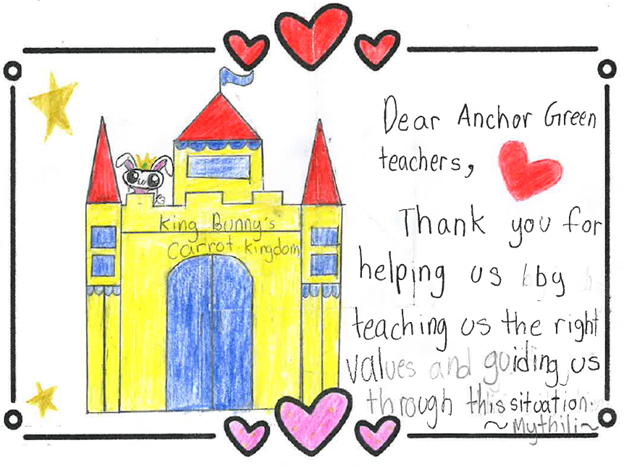 King Bunny's
Carrot Kingdom
Dear Anchor Green
teachers,
Thank you for
helping us by
teaching us the right
values and guiding us
through this situation.
~Mythili~